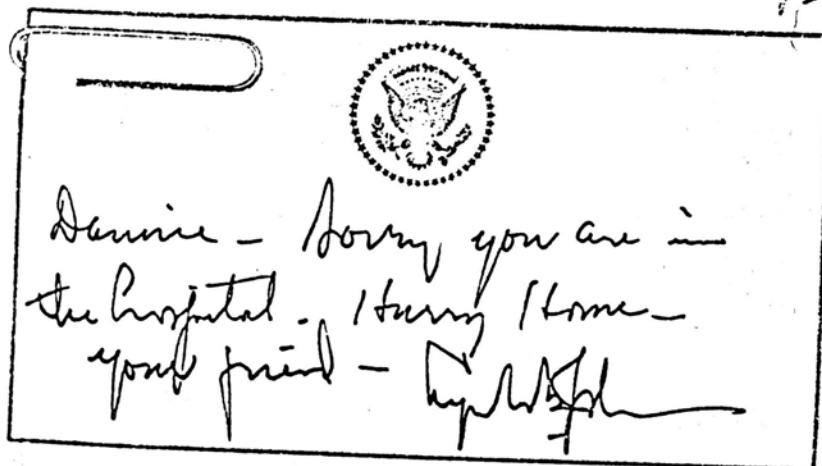 Dannie - Sorry you are in
the hospital. Hurry Home -
your friend - Lyndon B Johnson